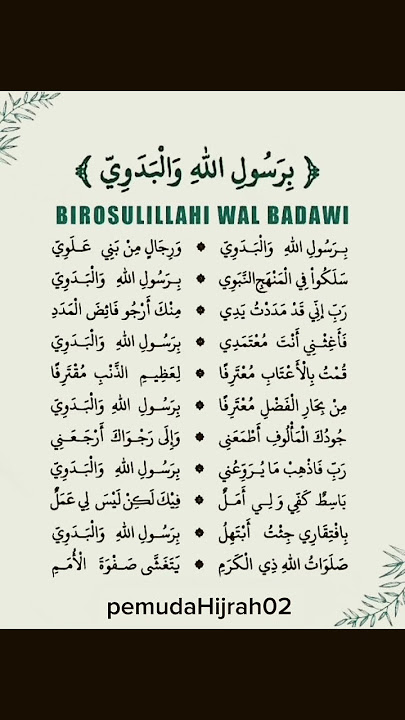 ﴿ بِرَسُولِ اللهِ وَالْبَدَوِيّ ﴾
BIROSULILLAHI WAL BADAWI
بِرَسُولِ اللهِ وَالْبَدَوِيّ * وَرِجَالٍ مِنْ بَنِي عَلَوِيّ
سَلَكُواْ فِي الْمَنْهَجِ النَّبَوِي * بِرَسُولِ اللهِ وَالْبَدَوِيّ
رَبِّ إِنِّي قَدْ مَدَدْتُ يَدِي * مِنْكَ أَرْجُو فَائِضَ الْمَدَدِ
فَأَغِثْنِي أَنْتَ مُعْتَمَدِي * بِرَسُولِ اللهِ وَالْبَدَوِيّ
قُمْتُ بِالْأَعْتَابِ مُعْتَرِفًا * لِعَظِيمِ الذَّنْبِ مُقْتَرِفًا
مِنْ بِحَارِ الْفَضْلِ مُغْتَرِفًا * بِرَسُولِ اللهِ وَالْبَدَوِيّ
جُودُكَ الْمَأْلُوفِ أَطْمَعَنِي * وَإِلَى رَجْوَاكَ أَرْجَعَنِي
رَبِّ فَاذْهِبْ مَا يُرَوِّعُنِي * بِرَسُولِ اللهِ وَالْبَدَوِيّ
بَاسِطٌ كَفِّي وَلِي أَمَلٌ * فِيْكَ لَكِنْ لَيْسَ لِي عَمَلٌ
بِافْتِقَارِي جِئْتُ أَبْتَهِلُ * بِرَسُولِ اللهِ وَالْبَدَوِيّ
صَلَوَاتُ اللهِ ذِي الْكَرَمِ * يَتَغَشَّى صَفْوَةَ الْأُمَمِ
pemudaHijrah02